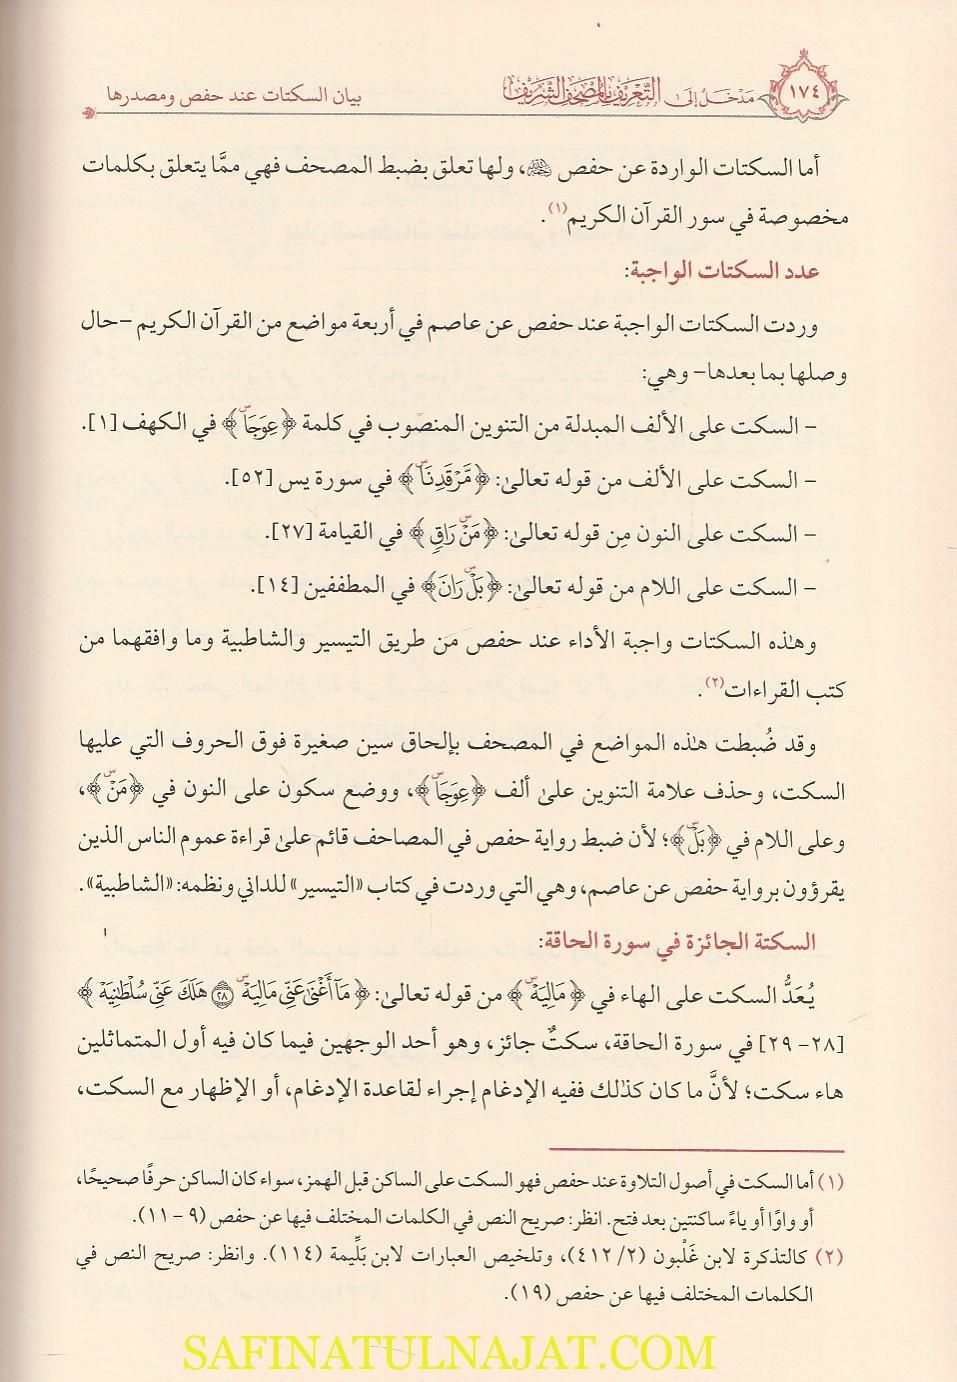 ١٧٤
مَدْخَلٌ إِلَى التَّعْرِيفِ بِالْمُصْحَفِ الشَّرِيفِ
بيان السكتات عند حفص ومصدرها
أما السكتات الواردة عن حفص ﵁، ولها تعلق بضبط المصحف فهي ممَّا يتعلق بكلمات
مخصوصة في سور القرآن الكريم(١).
عدد السكتات الواجبة:
وردت السكتات الواجبة عند حفص عن عاصم في أربعة مواضع من القرآن الكريم –حال
وصلها بما بعدها– وهي:
– السكت على الألف المبدلة من التنوين المنصوب في كلمة ﴿عِوَجَاۜ﴾ في الكهف [١].
– السكت على الألف من قوله تعالىٰ: ﴿مَّرْقَدِنَاۜ﴾ في سورة يس [٥٢].
– السكت على النون مِن قوله تعالىٰ: ﴿مَنْۜ رَاقٖ﴾ في القيامة [٢٧].
– السكت على اللام من قوله تعالىٰ: ﴿بَلْۜ رَانَ﴾ في المطففين [١٤].
وهـٰذه السكتات واجبة الأداء عند حفص من طريق التيسير والشاطبية وما وافقهما من
كتب القراءات(٢).
وقد ضُبطت هـٰذه المواضع في المصحف بإلحاق سين صغيرة فوق الحروف التي عليها
السكت، وحذف علامة التنوين علىٰ ألف ﴿عِوَجَاۜ﴾، ووضع سكون على النون في ﴿مَنْۜ﴾،
وعلى اللام في ﴿بَلْۜ﴾؛ لأن ضبط رواية حفص في المصاحف قائم علىٰ قراءة عموم الناس الذين
يقرؤون برواية حفص عن عاصم، وهي التي وردت في كتاب «التيسير» للداني ونظمه: «الشاطبية».
السكتة الجائزة في سورة الحاقة:
يُعَدُّ السكت على الهاء في ﴿مَالِيَهْۜ﴾ من قوله تعالىٰ: ﴿مَآ أَغْنَىٰ عَنِّى مَالِيَهْۜ ٢٨ هَلَكَ عَنِّى سُلْطَٰنِيَهْ﴾
[٢٨– ٢٩] في سورة الحاقة، سكتٌ جائز، وهو أحد الوجهين فيما كان فيه أول المتماثلين
هاء سكت؛ لأنَّ ما كان كذٰلك ففيه الإدغام إجراء لقاعدة الإدغام، أو الإظهار مع السكت،
(١) أما السكت في أصول التلاوة عند حفص فهو السكت على الساكن قبل الهمز، سواء كان الساكن حرفًا صحيحًا،
أو واوًا أو ياءً ساكنتين بعد فتح. انظر: صريح النص في الكلمات المختلف فيها عن حفص (٩ – ١١).
(٢) كالتذكرة لابن غَلْبون (٢/ ٤١٢)، وتلخيص العبارات لابن بَلِّيمة (١١٤). وانظر: صريح النص في
الكلمات المختلف فيها عن حفص (١٩).
SAFINATULNAJAT.COM